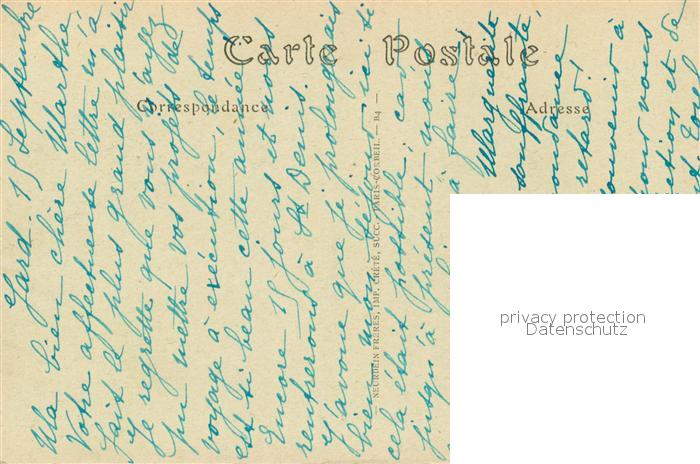 Carte Postale
Correspondance
Adresse
NEURDEIN FRÈRES, IMP. CRÉTÉ, SUCC. PARIS-CORBEIL. — B4 —
Gard 15 Septembre
Ma bien chère Marthe
Votre affectueuse lettre m'a
fait le plus grand plaisir
Je regrette que vous n'ayez
pu mettre vos projets de
voyage à exécution, le temps
est si beau cette année
Encore 15 jours et nous
rentrerons à St Denis.
J'avoue que je prolongerais
bien mon séjour ici si
cela était possible, car
jusqu'à présent nous
à faire
Marguerite
souffrante,
retard
souvenir à
pour vous
et de
privacy protection
Datenschutz